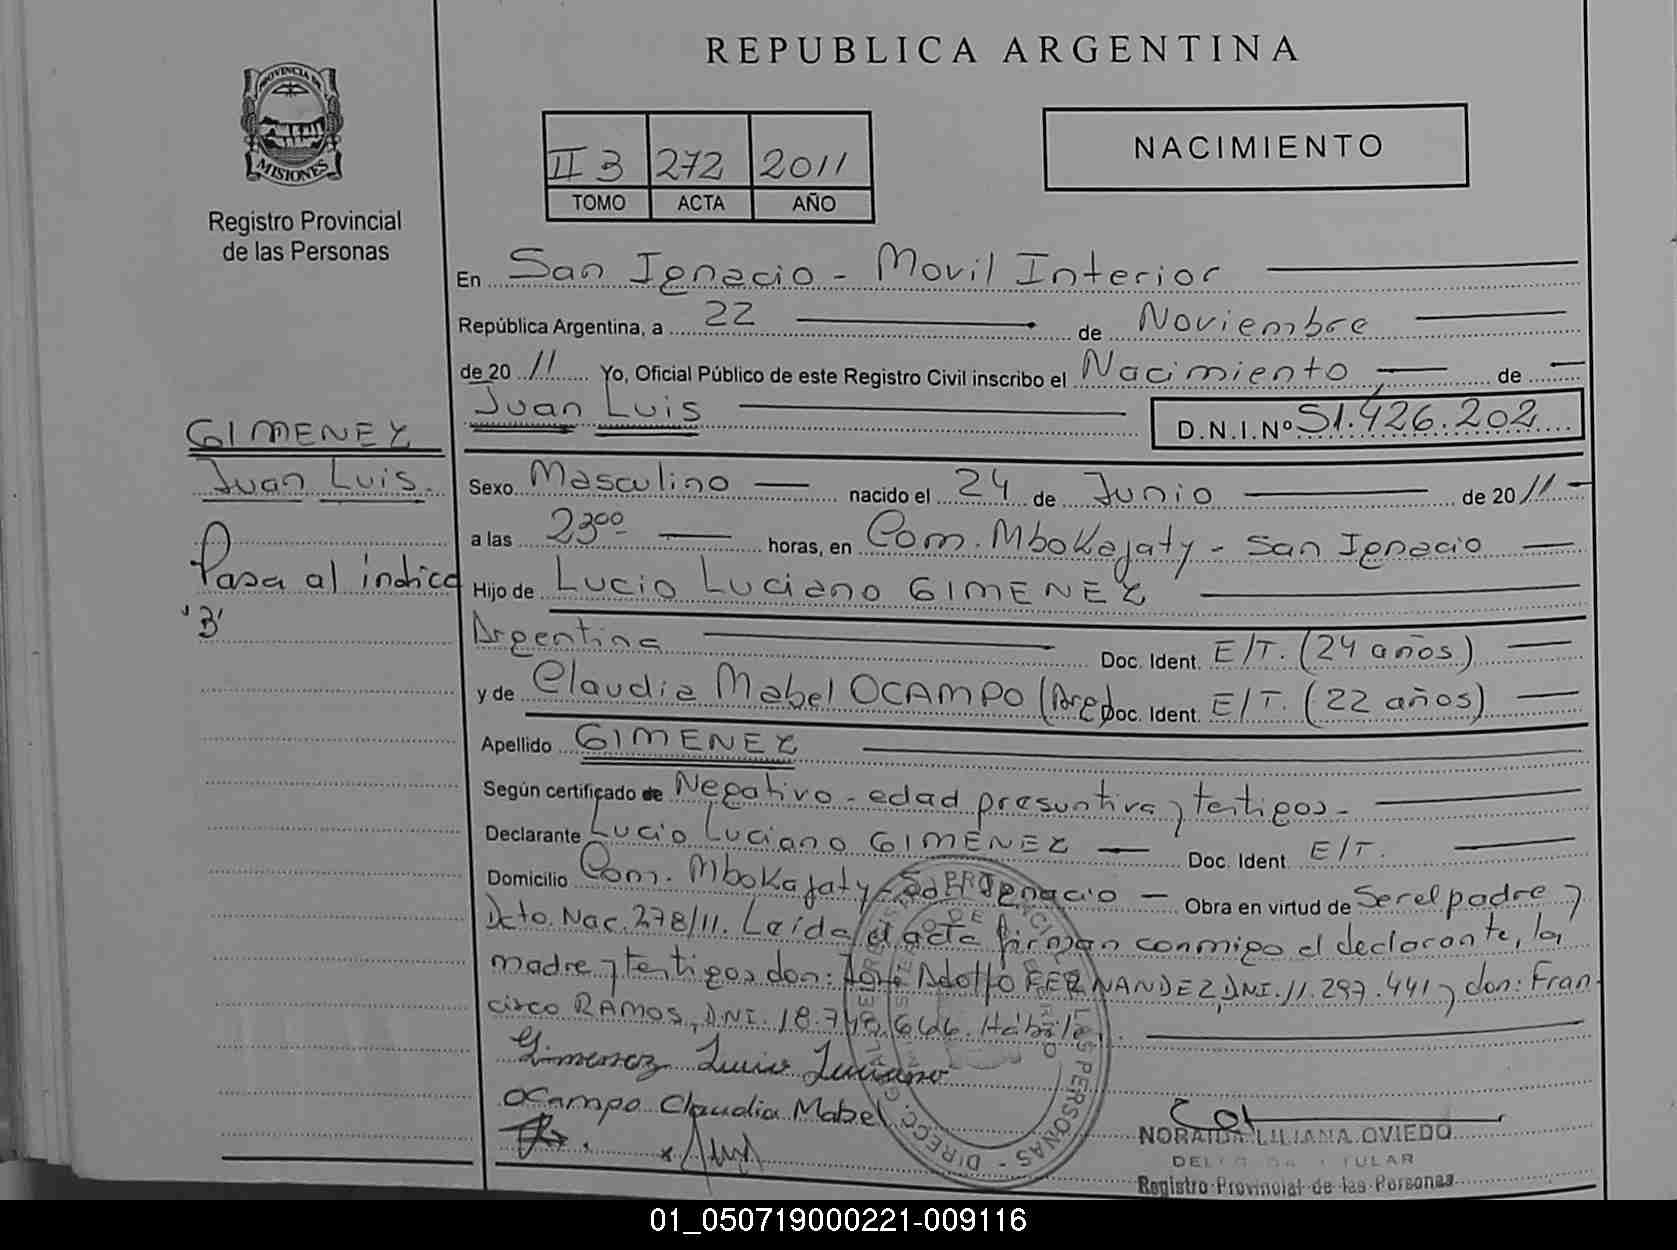 REPUBLICA ARGENTINA
PROVINCIA DE
MISIONES
Registro Provincial
de las Personas
II 3 272 2011
TOMO ACTA AÑO
NACIMIENTO
En San Ignacio - Movil Interior
República Argentina, a 22 de Noviembre
de 20 11 Yo, Oficial Público de este Registro Civil inscribo el Nacimiento de
Juan Luis
D.N.I.Nº 51.426.202
GIMENEZ
Juan Luis.
Pasa al indice
"B"
Sexo Masculino nacido el 24 de Junio de 20 11
a las 23⁰⁰ horas, en Com. Mbokajaty - San Ignacio
Hijo de Lucio Luciano GIMENEZ
Argentina Doc. Ident. E/T. (24 años)
y de Claudia Mabel OCAMPO (Arg) Doc. Ident. E/T. (22 años)
Apellido GIMENEZ
Según certificado de Negativo - edad presuntiva y testigos -
Declarante Lucio Luciano GIMENEZ Doc. Ident. E/T.
Domicilio Com. Mbokajaty - San Ignacio - Obra en virtud de Ser el padre y
Dcto. Nac. 278/11. Leída el acta firman conmigo el declarante, la
madre y testigos don: Adolfo FERNANDEZ, DNI. 11.297.441 y don: Fran
cisco RAMOS, DNI. 18.748.646. Hábiles.
Gimenez Lucio Luciano
Ocampo Claudia Mabel
NORAIDA LILIANA OVIEDO
DELEGADA TITULAR
Registro Provincial de las Personas
01_050719000221-009116